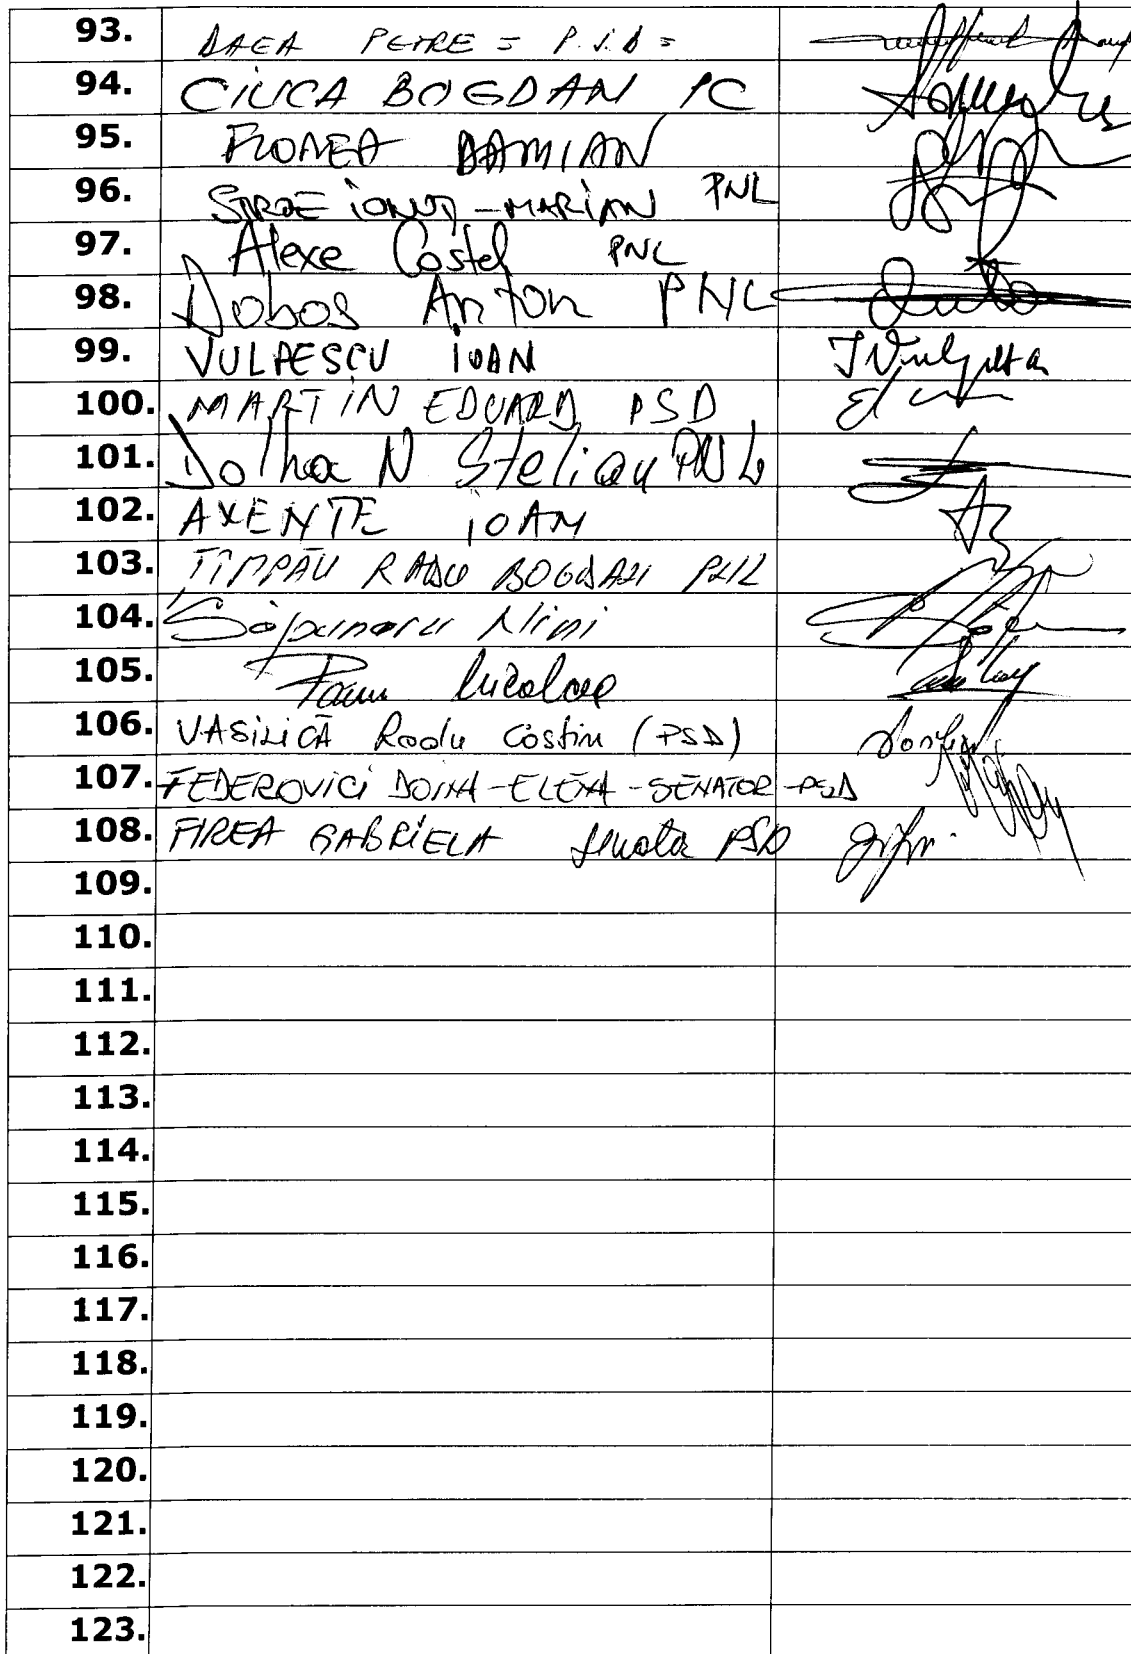 93. DAEA PETRE = P.S.D =
94. CIUCA BOGDAN PC
95. FLOREA DAMIAN
96. STROE IONUȚ-MARIAN PNL
97. Alexe Costel PNL
98. Dobos Anton PNL
99. VULPESCU IOAN
100. MARTIN EDUARD PSD
101. Dolha N Stelian PNL
102. AXENTE IOAN
103. TIMPĂU RADU BOGDAN PNL
104. Săpunaru Nini
105. Paun Nicolae
106. VASILICĂ Radu Costin (PSD)
107. FEDEROVICI DOINA-ELENA-SENATOR-PSD
108. FIREA GABRIELA PSD
109.
110.
111.
112.
113.
114.
115.
116.
117.
118.
119.
120.
121.
122.
123.